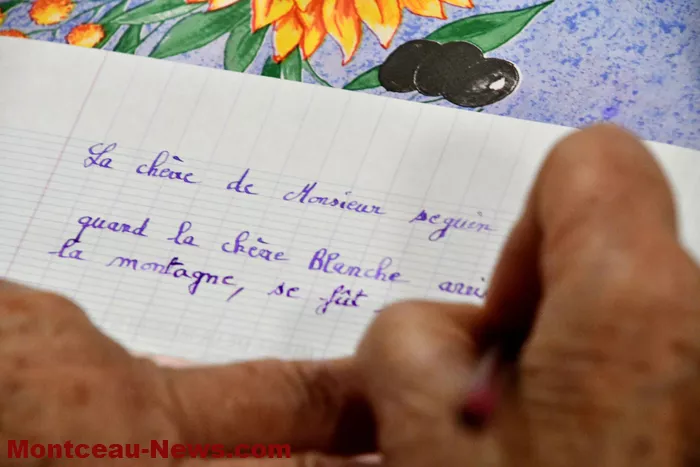 La chèvre de Monsieur seguin
quand la chèvre Blanche arri
la montagne, se fût
Montceau-News.com